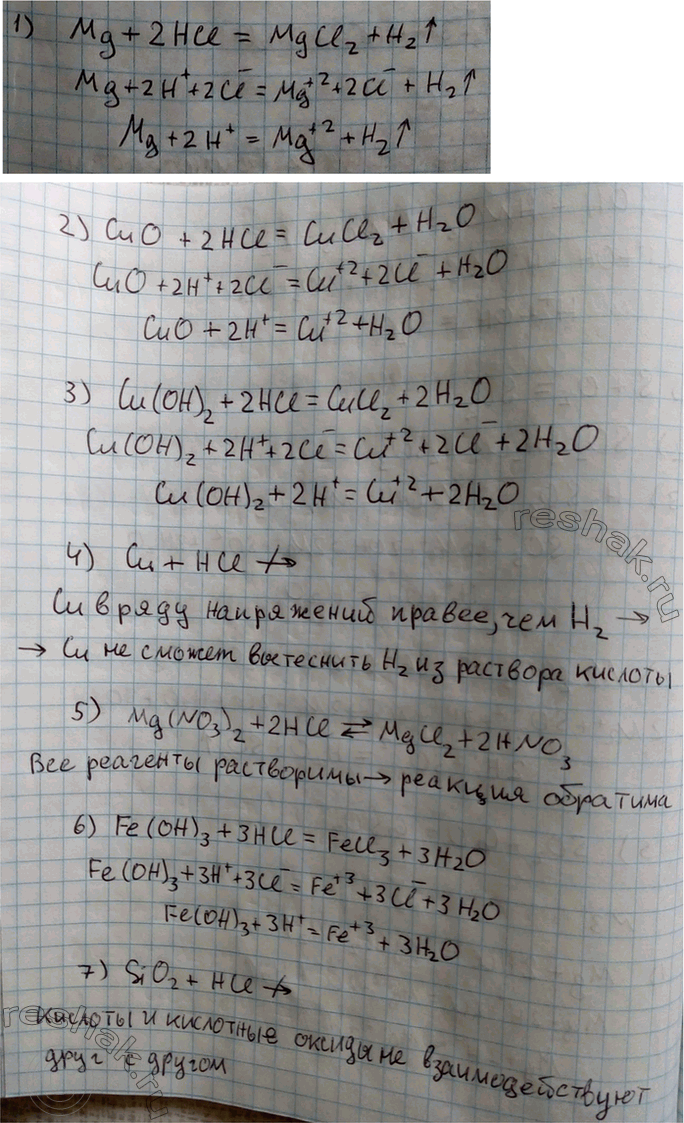 1) Mg + 2HCl = MgCl₂ + H₂↑
Mg + 2H⁺ + 2Cl⁻ = Mg⁺² + 2Cl⁻ + H₂↑
Mg + 2H⁺ = Mg⁺² + H₂↑
2) CuO + 2HCl = CuCl₂ + H₂O
CuO + 2H⁺ + 2Cl⁻ = Cu⁺² + 2Cl⁻ + H₂O
CuO + 2H⁺ = Cu⁺² + H₂O
3) Cu(OH)₂ + 2HCl = CuCl₂ + 2H₂O
Cu(OH)₂ + 2H⁺ + 2Cl⁻ = Cu⁺² + 2Cl⁻ + 2H₂O
Cu(OH)₂ + 2H⁺ = Cu⁺² + 2H₂O
reshak.ru
4) Cu + HCl ↛
Cu в ряду напряжений правее, чем H₂ →
→ Cu не сможет вытеснить H₂ из раствора кислоты
5) Mg(NO₃)₂ + 2HCl ⇄ MgCl₂ + 2HNO₃
Все реагенты растворимы → реакция обратима
6) Fe(OH)₃ + 3HCl = FeCl₃ + 3H₂O
Fe(OH)₃ + 3H⁺ + 3Cl⁻ = Fe⁺³ + 3Cl⁻ + 3H₂O
Fe(OH)₃ + 3H⁺ = Fe⁺³ + 3H₂O
7) SiO₂ + HCl ↛
Кислоты и кислотные оксиды не взаимодействуют
друг с другом
reshak.ru